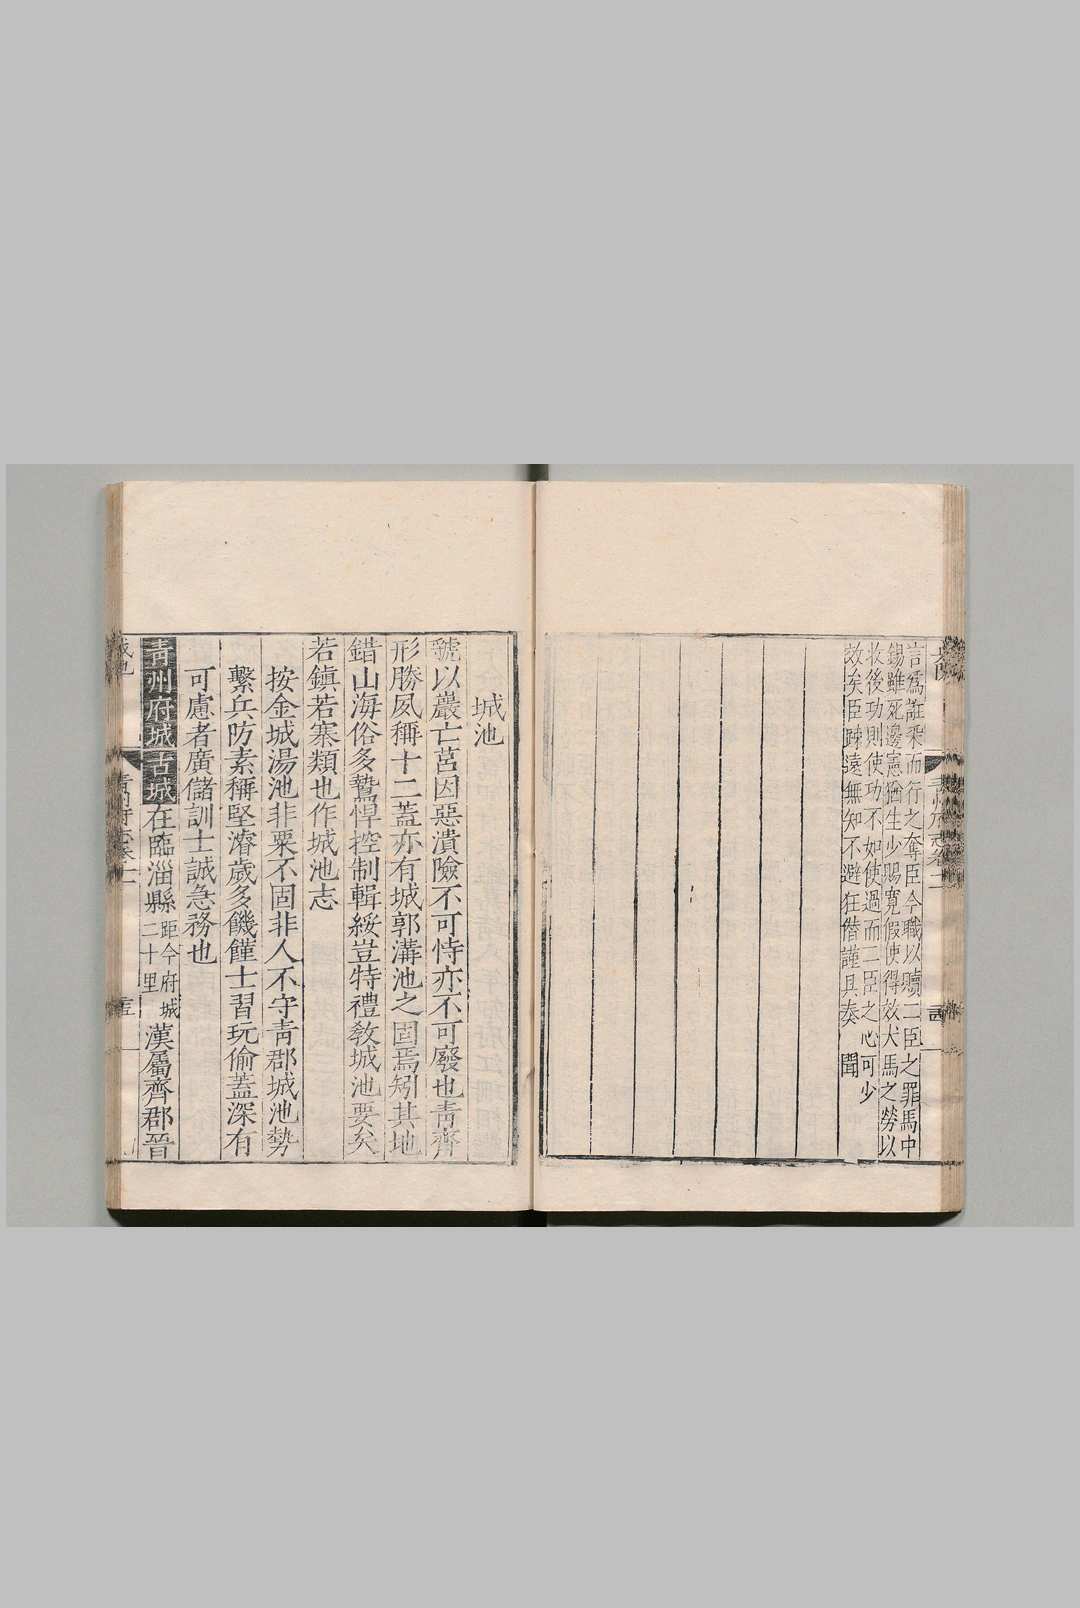 言爲誑乘而行之奪臣今職以贖二臣之罪馬中
錫雖死邊憲猶生少賜寬假使得效犬馬之勞以
收後功則使功不如使過而二臣之心可少
故矣臣踈遠無知不避狂僭謹具奏 聞
城池
虢以巖亡莒因惡潰險不可恃亦不可廢也青齊
形勝夙稱十二蓋亦有城郭溝池之固焉矧其地
錯山海俗多鷙悍控制輯綏豈特禮敎城池要矣
若鎮若寨類也作城池志
按金城湯池非粟不固非人不守青郡城池勢
繫兵防素稱堅濬歲多饑饉士習玩偷蓋深有
可慮者廣儲訓士誠急務也
青州府城古城在臨淄縣
距今府城
二十里
漢屬齊郡晉